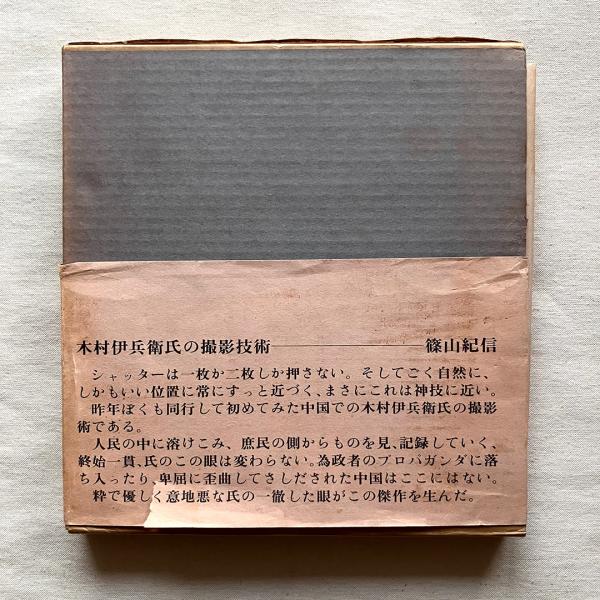 木村伊兵衛氏の撮影技術――――――篠山紀信
シャッターは一枚か二枚しか押さない。そしてごく自然に、
しかもいい位置に常にすっと近づく、まさにこれは神技に近い。
昨年ぼくも同行して初めてみた中国での木村伊兵衛氏の撮影
術である。
人民の中に溶けこみ、庶民の側からものを見、記録していく、
終始一貫、氏のこの眼は変わらない。為政者のプロパガンダに落
ち入ったり、卑屈に歪曲してさしだされた中国はここにはない。
粋で優しく意地悪な氏の一徹した眼がこの傑作を生んだ。